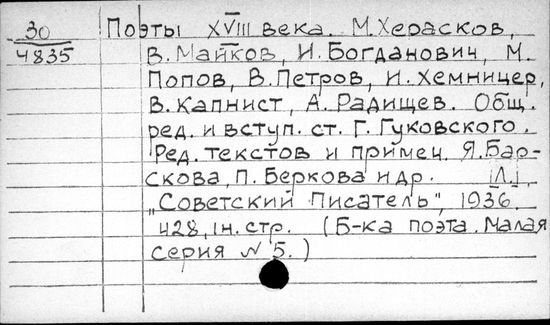 30 Поэты XVIII века. М.Херасков,
4835 В.Майков, И.Богданович, М.
Попов, В.Петров, И.Хемницер,
В.Капнист, А.Радищев. Общ.
ред. и вступ. ст. Г.Гуковского.
Ред. текстов и примеч. Я.Бар-
скова, П.Беркова и др. [Л.],
„Советский Писатель", 1936.
428, 1н. стр. (Б-ка поэта. Малая
серия № 5.)